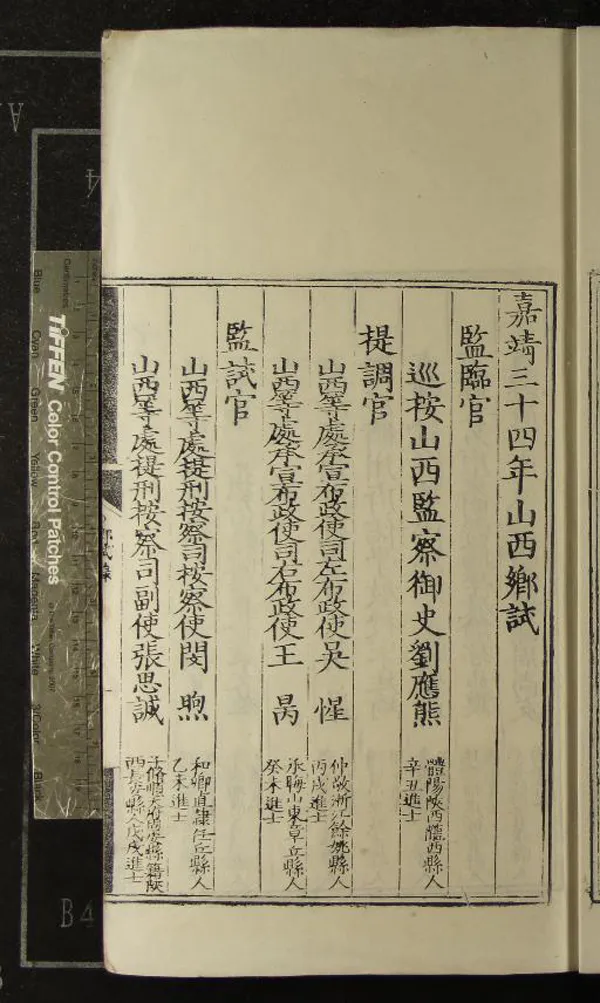 嘉靖三十四年山西鄉試
監臨官
巡按山西監察御史劉應熊
體陽陝西隴西縣人
辛丑進士
提調官
山西等處承宣布政使司左布政使吳 惺
仲敬浙江餘姚縣人
丙戌進士
山西等處承宣布政使司右布政使王 昺
承晦山東章丘縣人
癸未進士
監試官
山西等處提刑按察司按察使閔 煦
和卿直隸任丘縣人
乙未進士
山西等處提刑按察司副使張思誠
西長安縣人戊戌進士
TIFFEN Color Control Patches
Blue
Cyan
Green
Yellow
Red
Magenta
White
3/Color
Black
Centimetres
A
4
B4